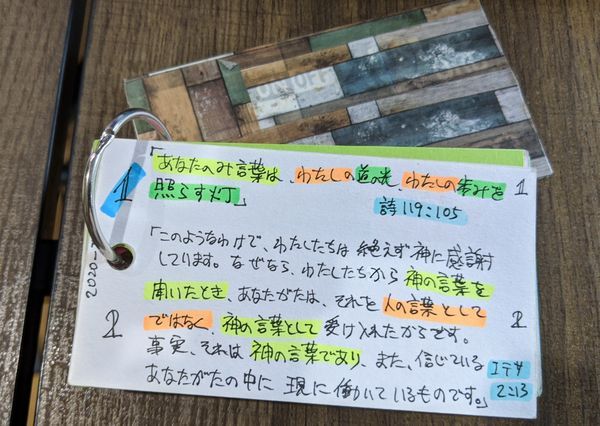 ON OFF
2020-
1
「あなたのみ言葉は、わたしの道の光、わたしの歩みを 1
照らす灯」
詩119:105
「このようなわけで、わたしたちは絶えず神に感謝
しています。なぜなら、わたしたちから神の言葉を
聞いたとき、あなたがたは、それを人の言葉として
2 ではなく 神の言葉として受け入れたからです。 2
事実、それは神の言葉であり、また、信じている Iテサ
あなたがたの中に現に働いているものです。」 2:13